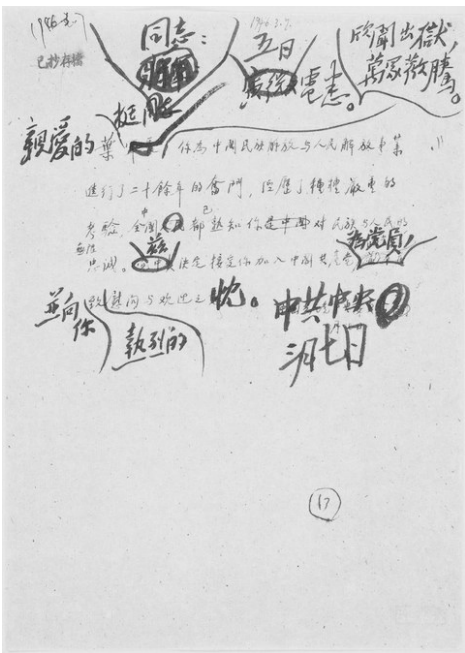 1946.3.7.
已抄存檔
同志：
五日
電悉。
欣聞出獄，
萬眾歡騰。
挺
親愛的葉
你為中國民族解放与人民解放事業
進行了二十餘年的奮鬥，經歷了種種嚴重的
考驗，全中國都已熟知你對民族与人民的
無限
忠誠。茲決定接受你加入中國共產黨為黨員，
並向你
致熱烈的慰問与歡迎之忱。
中共中央
三月七日
17